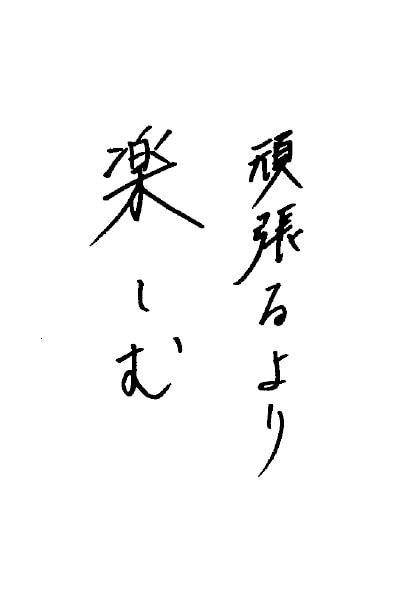 頑張るより
楽しむ